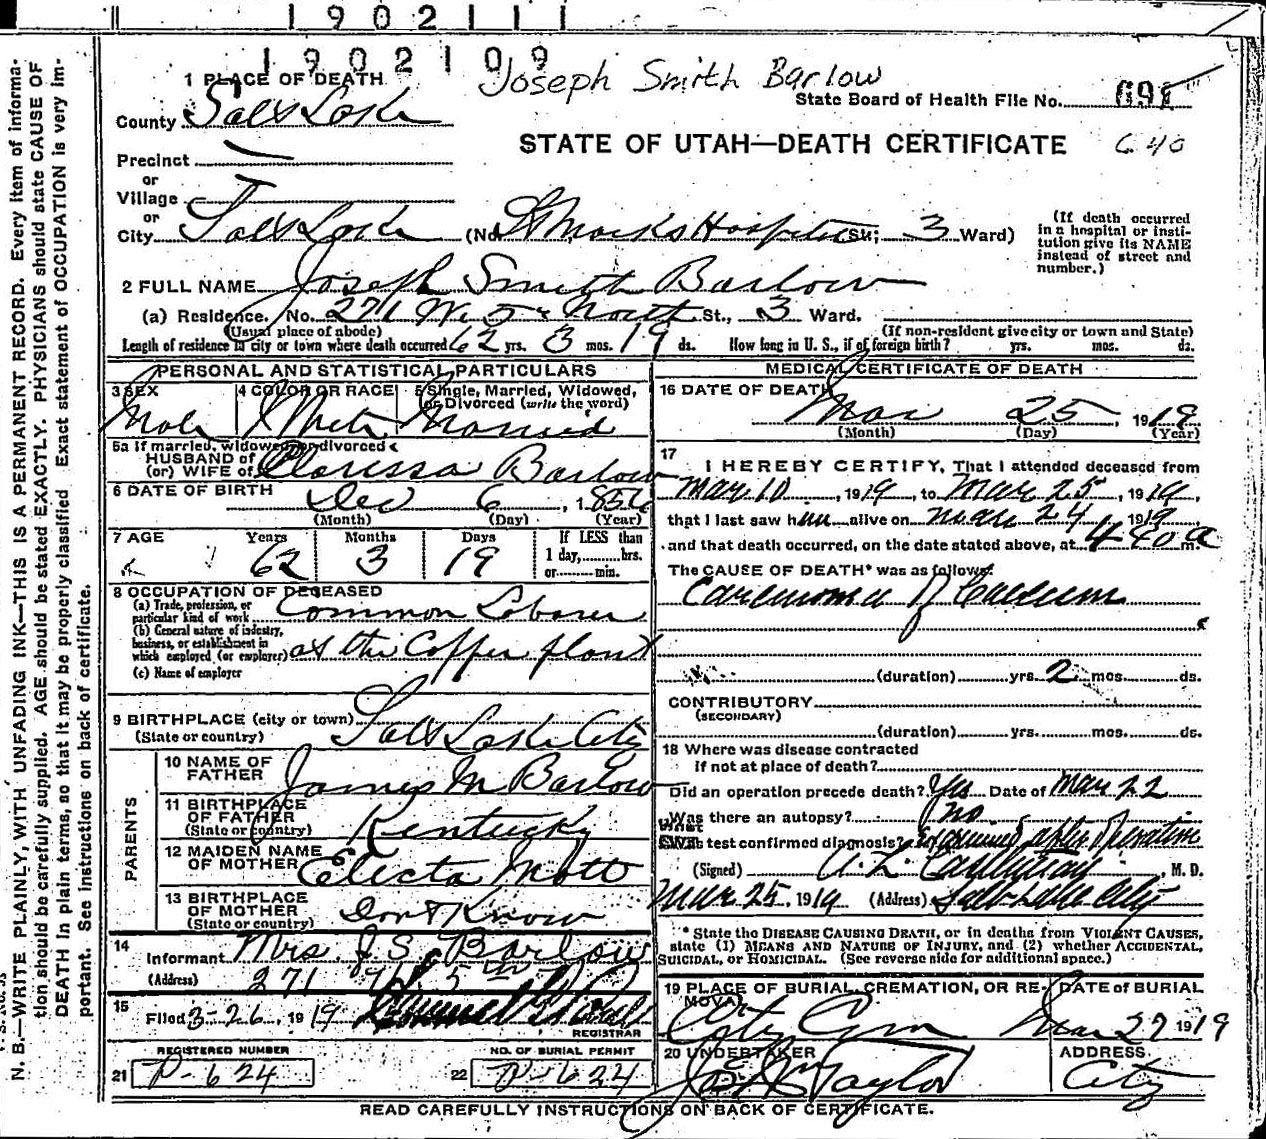 1902111
1902109
Joseph Smith Barlow
1 PLACE OF DEATH
State Board of Health File No. 691
County Salt Lake
STATE OF UTAH—DEATH CERTIFICATE 640
Precinct
or
Village
or
City Salt Lake (No. St Marks Hospital St; 3 Ward)
(If death occurred in a hospital or institution give its NAME instead of street and number.)
2 FULL NAME Joseph Smith Barlow
(a) Residence. No. 271 W. 5th North St., 3 Ward.
(Usual place of abode) (If non-resident give city or town and State)
Length of residence in city or town where death occurred 62 yrs. 3 mos. 19 ds. How long in U. S., if of foreign birth? yrs. mos. ds.
PERSONAL AND STATISTICAL PARTICULARS
3 SEX 4 COLOR OR RACE 5 Single, Married, Widowed, or Divorced (write the word)
Male White Married
5a If married, widowed or divorced
HUSBAND of
(or) WIFE of Clarissa Barlow
6 DATE OF BIRTH Dec 6, 1856
(Month) (Day) (Year)
7 AGE Years Months Days If LESS than
1 day,........hrs.
or.........min.
62 3 19
8 OCCUPATION OF DECEASED
(a) Trade, profession, or particular kind of work Common Laborer
(b) General nature of industry, business, or establishment in which employed (or employer) at the Copper plant
(c) Name of employer
9 BIRTHPLACE (city or town)
(State or country) Salt Lake City
PARENTS
10 NAME OF FATHER James M Barlow
11 BIRTHPLACE OF FATHER (State or country) Kentucky
12 MAIDEN NAME OF MOTHER Electa Mott
13 BIRTHPLACE OF MOTHER (State or country) Don't Know
14 Informant Mrs. J. S. Barlow
(Address) 271 W. 5th
15 Filed 3-26, 1919
REGISTRAR
REGISTERED NUMBER NO. OF BURIAL PERMIT
21 P-624 22 P-624
MEDICAL CERTIFICATE OF DEATH
16 DATE OF DEATH
Mar 25, 1919
(Month) (Day) (Year)
17 I HEREBY CERTIFY, That I attended deceased from
Mar 10, 1919, to Mar 25, 1919,
that I last saw him alive on Mar 24 1919
and that death occurred, on the date stated above, at 4 40 a m.
The CAUSE OF DEATH* was as follows:
Carcinoma of Caecum
(duration) yrs. 2 mos. ds.
CONTRIBUTORY
(SECONDARY)
(duration) yrs. mos. ds.
18 Where was disease contracted
if not at place of death?
Did an operation precede death? Yes Date of Mar 22
Was there an autopsy? no
What test confirmed diagnosis? Examined after Operation
(Signed) M. D.
Mar 25, 1919 (Address) Salt Lake City
* State the DISEASE CAUSING DEATH, or in deaths from VIOLENT CAUSES,
state (1) MEANS AND NATURE OF INJURY, and (2) whether ACCIDENTAL,
SUICIDAL, or HOMICIDAL. (See reverse side for additional space.)
19 PLACE OF BURIAL, CREMATION, OR REMOVAL DATE of BURIAL
City Cem Mar 27 1919
20 UNDERTAKER ADDRESS
Jos Wm Taylor City
READ CAREFULLY INSTRUCTIONS ON BACK OF CERTIFICATE.
N. B.—WRITE PLAINLY, WITH UNFADING INK—THIS IS A PERMANENT RECORD. Every item of informa-
tion should be carefully supplied. AGE should be stated EXACTLY. PHYSICIANS should state CAUSE OF
DEATH in plain terms, so that it may be properly classified. Exact statement of OCCUPATION is very im-
portant. See instructions on back of certificate.